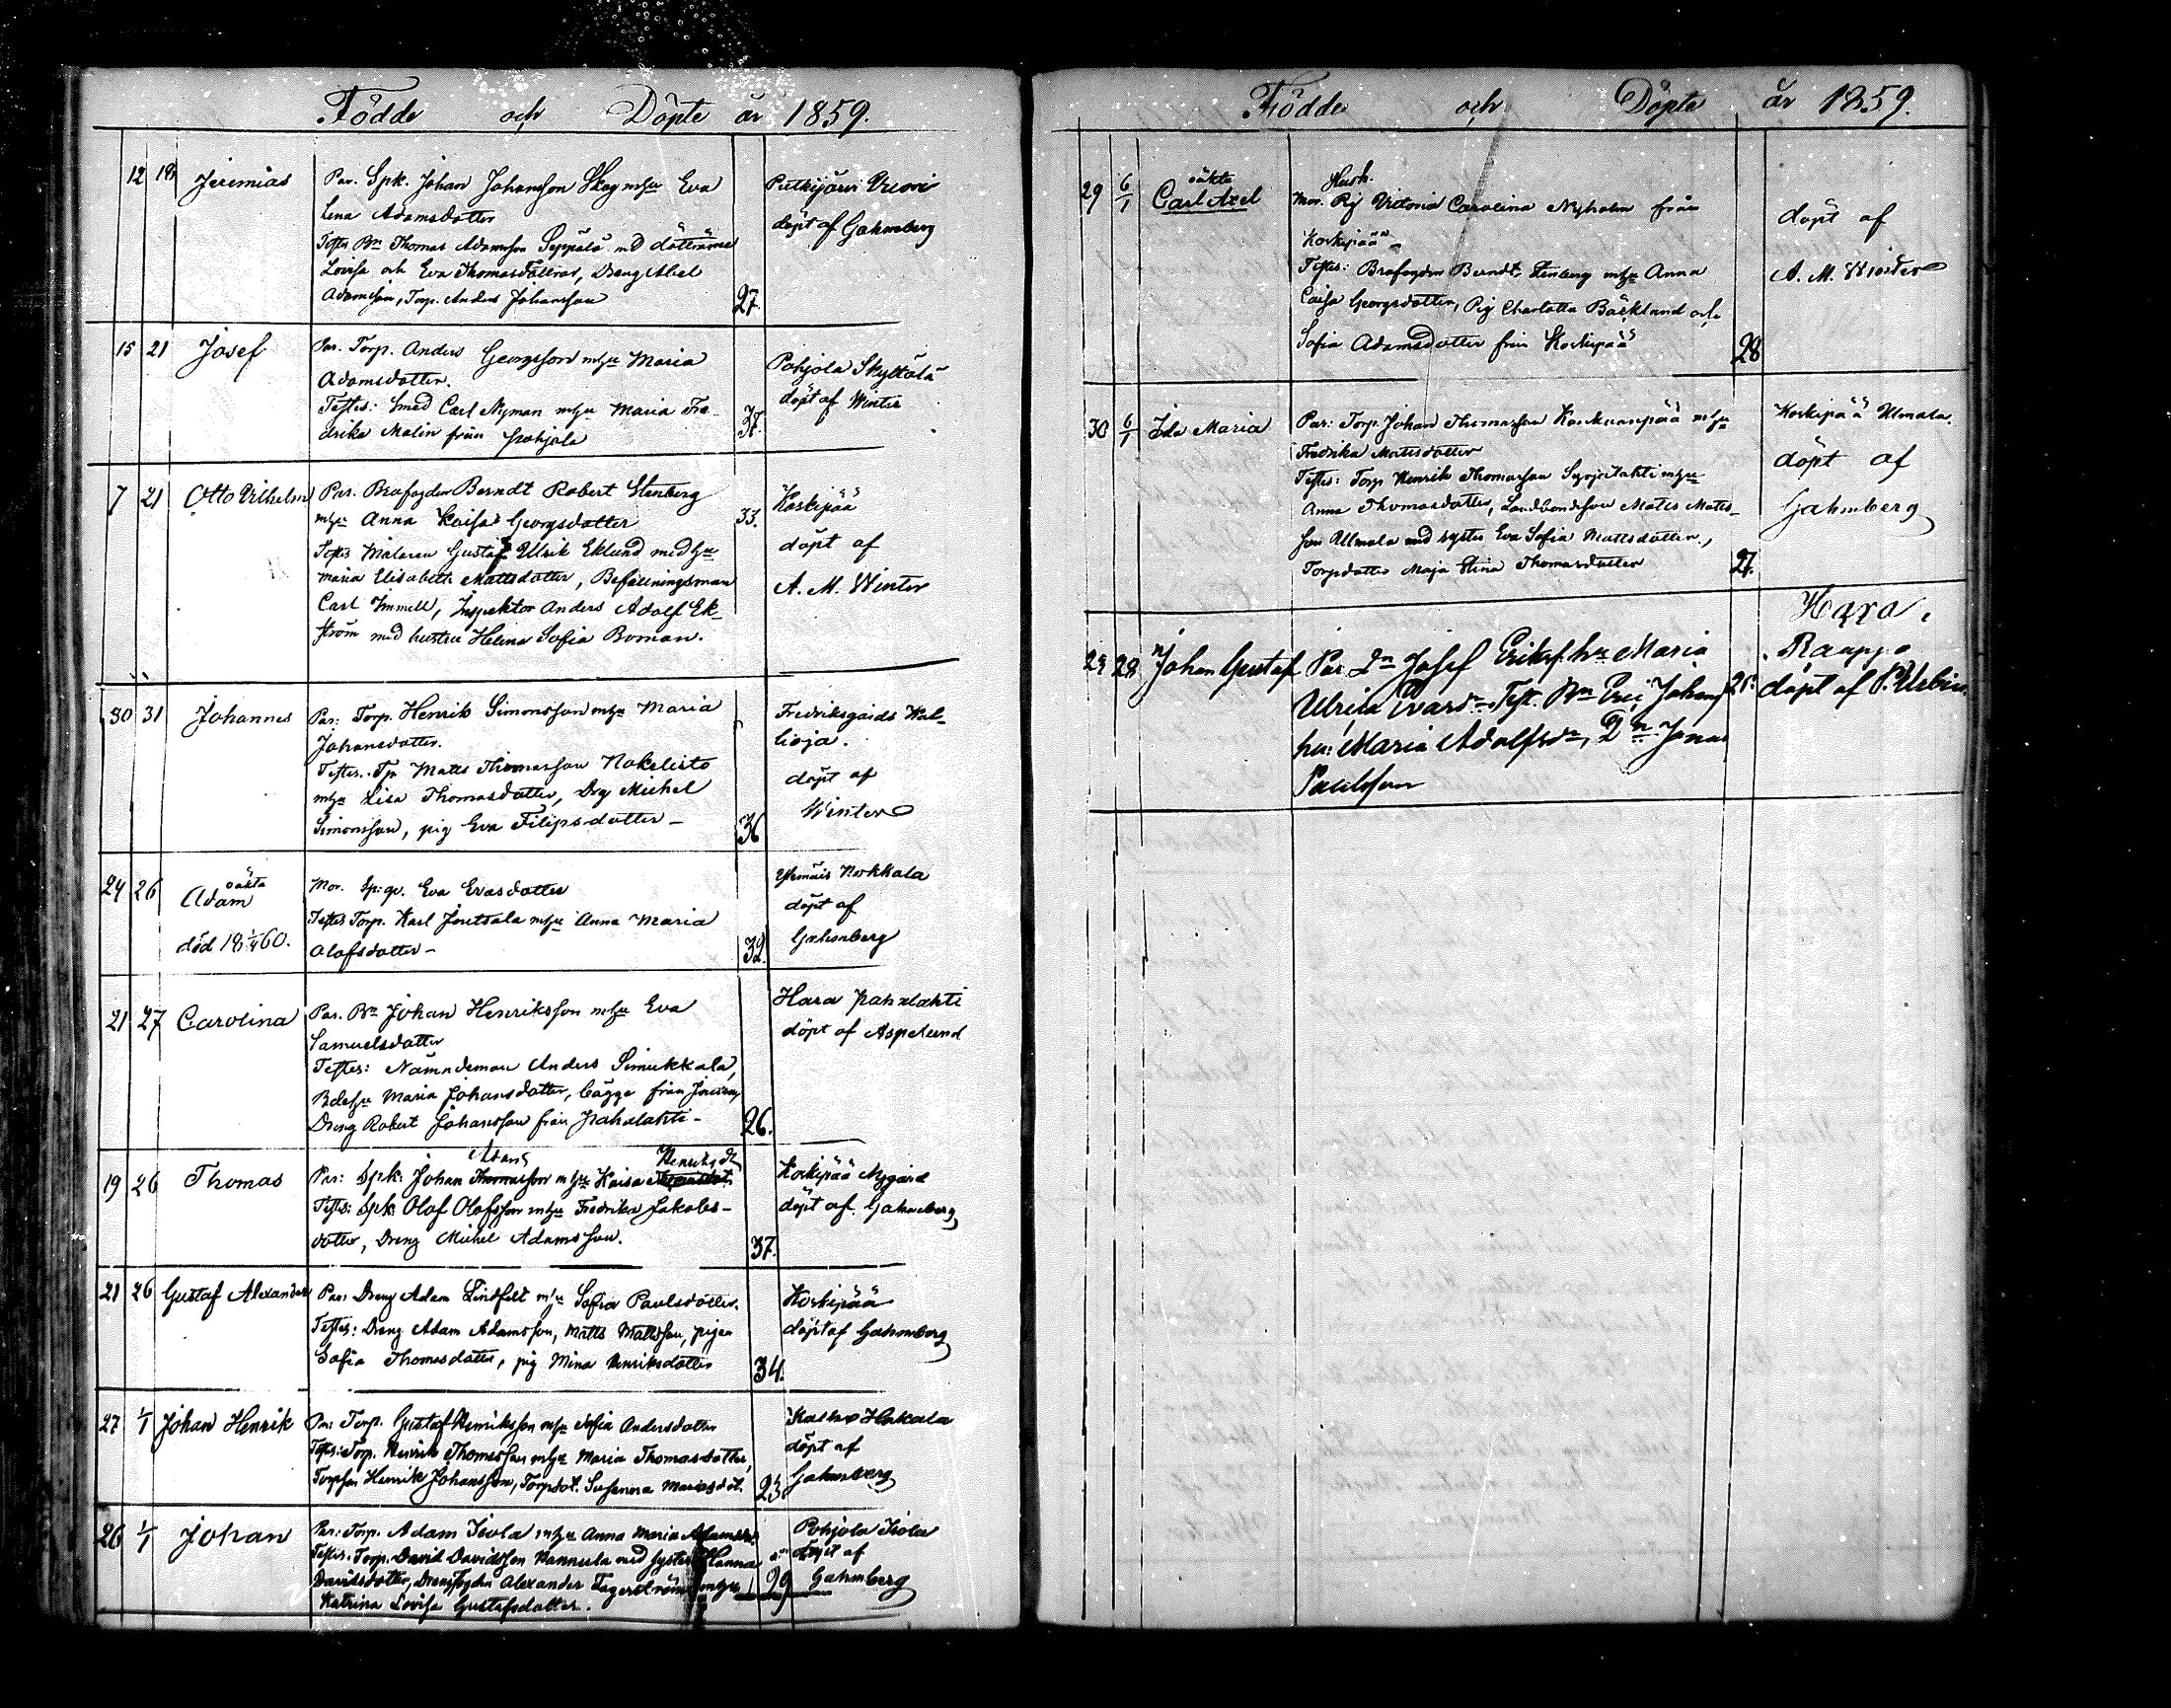 Födde och Döpte år 1859.
12 18 Jeremias Par. Spk. Johan Johansson Skog mhu Eva
Lena Adamsdotter
Testes Bn Thomas Adamsson Seppälä med döttrarne
Lovisa och Eva Thomasdöttrar, Dreng Abel
Adamsson, Torp. Anders Johansson
27.
döpt af Gahmberg
15 21 Josef Par. Torp. Anders Georgsson mhu Maria
Adamsdotter.
Testes: Smed Carl Nyman mhu Maria Fre-
drika Malin från Pohjola
37.
Pohjola Skyttälä
döpt af Winter
7 21 Otto Vilhelm Par. Brofogden Berndt Robert Stenberg
mhu Anna Kaisa Georgsdotter
Testes Målaren Gustaf Ulrik Eklund med hu
Maria Elisabeth Mattsdotter, Befallningsman
Carl Immell, Inspektor Anders Adolf Ek-
ström med hustru Helena Sofia Boman.
33.
Koskipää
döpt af
A. M. Winter
30 31 Johannes Par: Torp. Henrik Simonsson mhu Maria
Johansdotter.
Testes. Tp Matts Thomasson
mhu Lisa Thomasdotter, Drg Michel
Simonsson, pig Eva Filipsdotter -
36
Fredriksgårds Kal-
lioja.
döpt af
Winter
24 26 oäkta
Adam
död 18 1/4 60.
Mor. Eva Evasdotter
Testes Torp. Karl Joutsala mhu Anna Maria
Olofsdotter -
32.
Yhmäis Nokkala
döpt af
Gahmberg
21 27 Carolina Par. Bn Johan Henriksson mhu Eva
Samuelsdotter
Testes: Nämndeman Anders Simukkala,
Bdehu Maria Johansdotter, bägge från
Dreng Robert Johansson från Pahalahti -
26.
Hara Pahalahti
döpt af Aspelund
19 26 Thomas Adams Henriksd
Par: Spk: Johan Thomasson mhu Kaisa
Testes: Spk: Olof Olofsson mhu Fredrika Jakobs-
dotter, Dreng Michel Adamsson.
37.
Koskipää Nygård
döpt af Gahmberg
21 26 Gustaf Alexander Par: Dreng Adam Lindfelt mhu Sofia Paulsdotter.
Testes: Dreng Adam Adamsson, Matts Mattsson, pigan
Sofia Thomasdotter, pig Mina Henriksdotter
34.
Koskipää
döpt af Gahmberg
27 1/1 Johan Henrik Par: Torp. Gustaf Henriksson mhu Sofia Andersdotter
Testes: Torp. Henrik Thomasson mhu Maria Thomasdotter,
Torpson Henrik Johansson, Torpdot. Susanna
23.
döpt af
Gahmberg
26 1/1 Johan Par: Torp. Adam Isola mhu Anna Maria
Testes. Torp. David Davidsson Hannula med syster Hanna
Davidsdotter, Drengfogden Alexander Fagerström mhu
Katrina Lovisa Gustafsdotter.
29
Pohjola Isola
döpt af
Gahmberg
Födde och Döpte år 1859.
29 6/1 oäkta
Carl Axel
Hush.
Mor. Pig Victoria Carolina Nyholm från
Koskipää -
Testes: Brofogden Berndt Stenberg mhu Anna
Caisa Georgsdotter, Pig Charlotta Bäcklund och
Sofia Adamsdotter från Koskipää
28
döpt af
A. M. Winter
30 6/1 Ida Maria Par: Torp. Johan Thomasson mhu
Fredrika Mattsdotter
Testes: Torp. Henrik Thomasson mhu
Anna Thomasdotter, Landbondeson Matts Matts-
son Ullmala med syster Eva Sofia Mattsdotter,
Torpdotter Maja Stina Thomasdotter
27.
Koskipää Ulmala.
döpt af
Gahmberg
29 28 Johan Gustaf Par. Josef Eriks. hu Maria
Ulrica Test. Bn Johans
hu: Maria Adolfsdr, Jonas
Paulsson
Hara,
Raappo
döpt af